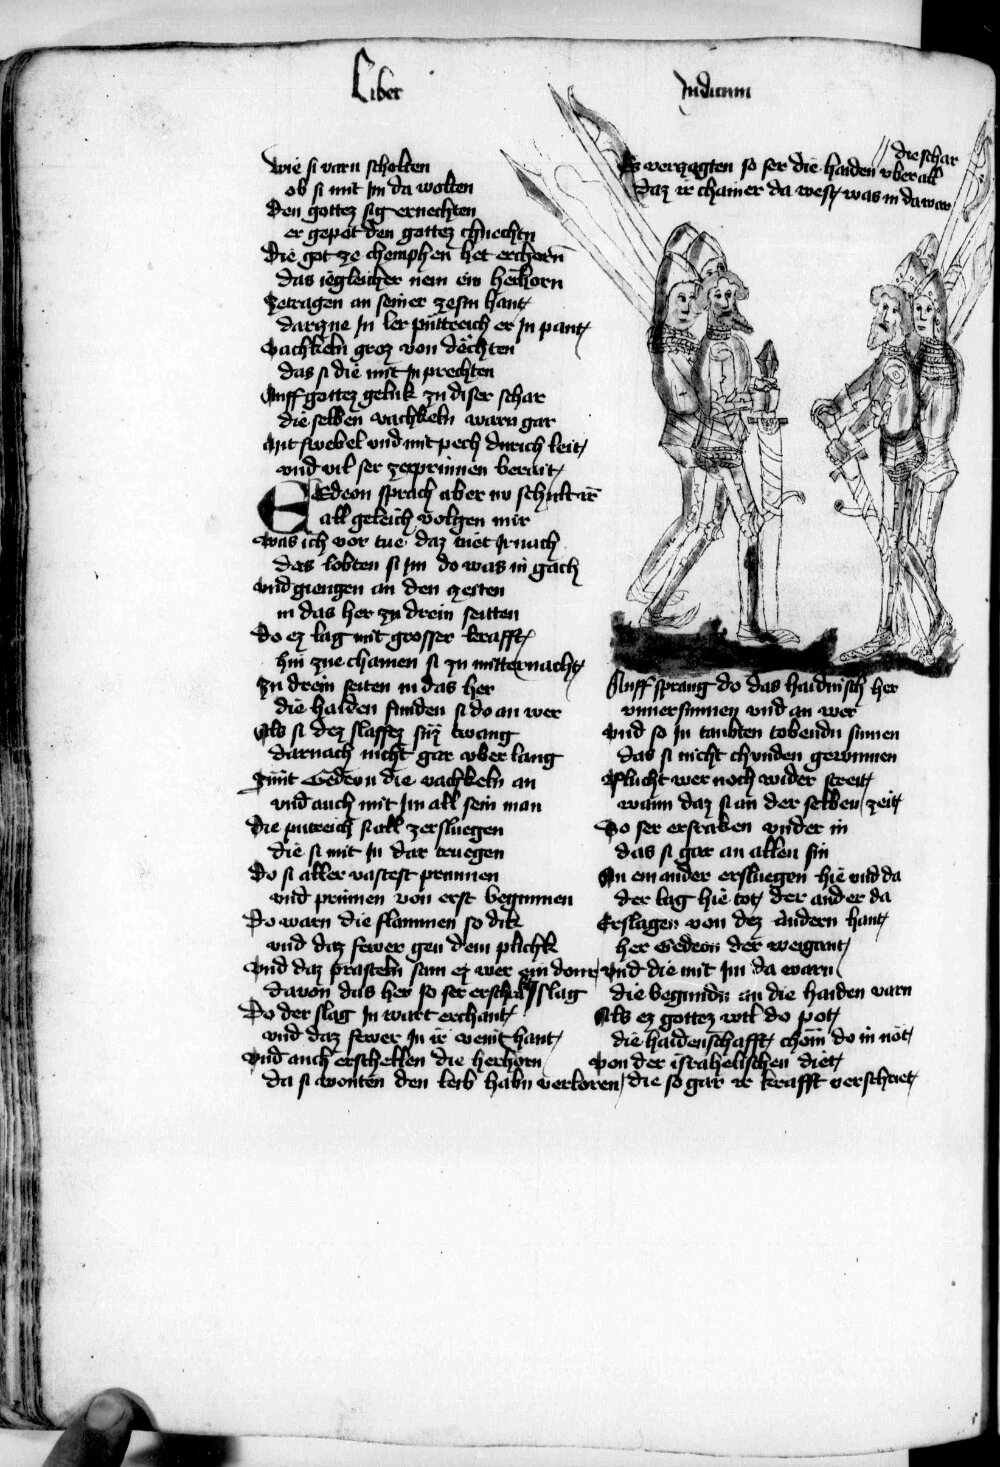 Liber Judicum
Wie si varn scholten
ob si mit Im da wolten
Den gottez sig ernechten
er gepot den gottez chnechtn
Die got ze chemphen het erchorn
das iegleicher nem ein herhorn
Zetragen an seiner zesm hant
darzue In ler puttreich er In pant
Vachkeln groz von dechten
das si die mit In prechten
Auff gottez geluk zu diser schar
die selben vachkeln warn gar
Mit swebel vnd mit pech durich leit
vnd vil ser zeprinnen berait
Gedeon sprach aber nv schult ir
all geleich volgen mir
Was ich vor tue daz tuet Ir nach
das lobten si Im do was in gach
Vnd giengen an den zeiten
in das her zu drein seitten
Do ez lag mit grosser krafft
hin zue chamen si zu mitternacht
Zu drein seiten in das her
die haiden funden si do an wer
Als si dez slaffez sur twang
darnach nicht gar vber lang
Zunt Gedeon die vachkeln an
vnd auch mit Im all sein man
Die putreich si all zersluegen
die si mit In dar truegen
Do si aller vastest prannen
vnd prinnen von erst begunnen
Do warn die flammen so dik
vnd daz fewer gen dem plichk
Vnd daz prasteln sam ez wer ein doner
davon das her so ser erschrak slag
Do der slag In wart erchant
vnd daz fewer In ir veint hant
Vnd auch erschellen die herhorn
da si wonten den leib habn verloren
Es verzagten so ser die haiden vber all
die schar
daz ir chainer da west was in da war
Auff sprang do das haidnisch her
vnuersunnen vnd an wer
Vnd so In taubten tobendn sinnen
das si nicht chunden gewinnen
Flucht wer noch wider streit
wann daz si an der selben zeit
So ser erstraken vnder in
das si gar an allen sin
An ein ander ersluegen hie vnd da
der lag hie tot der ander da
Erslagen von dez andern hant
her Gedeon der weigant
Vnd die mit Im da warn
die begundn an die haiden varn
Als ez gottez wil do pot
die haidenschafft chom do in not
Von der israhelischen diet
die so gar ir krafft verschriet